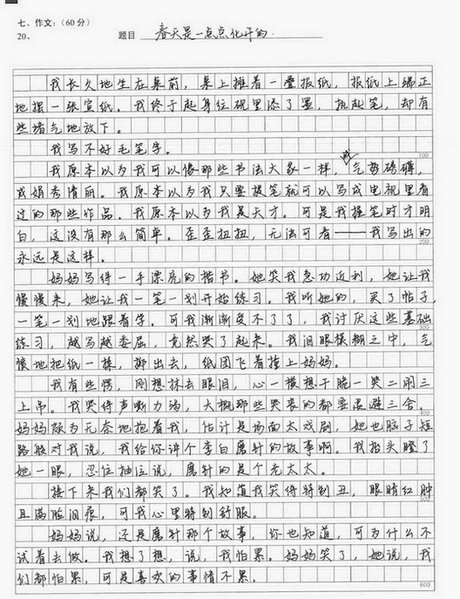 七、作文：（60分）
20、 题目 春天是一点点化开的
我长久地坐在桌前，桌上摊着一叠报纸，报纸上端正
地摆一张宣纸。我终于起身往砚里添了墨，执起笔，却有
些堵气地放下。
我写不好毛笔字。
我原本以为我可以像那些书法大家一样，或气势磅礴，
100
或娟秀清丽。我原本以为我只要提笔就可以写成电视里看
过的那些作品。我原本以为我是天才。可是我握笔时才明
白，这没有那么简单。歪歪扭扭，无法可看——我写出的
200
永远是这样。
妈妈写得一手漂亮的楷书。她笑我急功近利，她让我
慢慢来，她让我一笔一划开始练习。我听她的，买了帖子，
一笔一划地跟着学。可我渐渐受不了了，我讨厌这些基础
300
练习，越写越委屈，竟然哭了起来。我泪眼模糊之中，气
愤地把纸一揉，掷出去，纸团飞着撞上妈妈。
我有些愣，刚想抹去眼泪，心一横想干脆一哭二闹三
上吊。我哭得声嘶力竭，大概那些哭丧的都要退避三舍。
400
妈妈颇为无奈地抱着我，估计是场面太戏剧，她也脑子短
路般对我说，我给你讲个李白磨针的故事啊。我抬头瞪了
她一眼，忍住抽泣说，磨针的是个老太太。
500
接下来我们都笑了。我知道我哭得特别丑，眼睛红肿
且满脸泪痕，可我心里特别舒服。
妈妈说，还是磨针那个故事，你也知道，可为什么不
试着去做。我想了想，说，我怕累。妈妈笑了，她说，我
们都怕累，可是喜欢的事情不累。
600